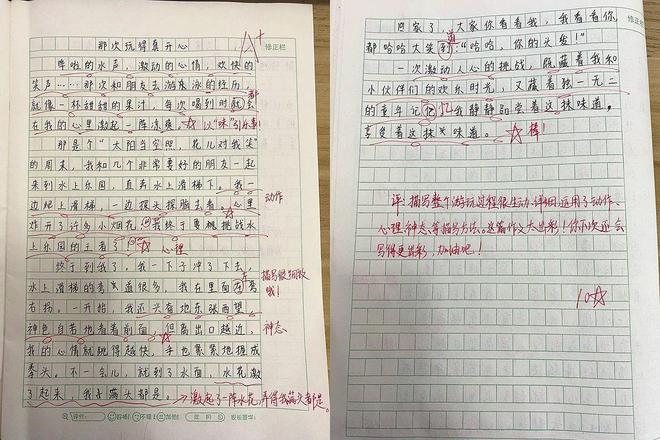 那次玩得真开心
A+
修正栏
哗啦的水声，激动的心情，欢快的
笑声……那次和朋友去游泳池的经历，
就像一杯甜甜的果汁，每次喝到时就会
都
在我的心里激起一阵凉爽。
以"味"引乐事！
那是个"太阳当空照，花儿对我笑"
的周末，我和几个非常要好的朋友一起
来到水上乐园，直奔水上滑梯下。我一
边爬上滑梯，一边探头探脑去看。心里
动作
炸开了许多小烟花，我终于要挑战水
上乐园的王者了！
心理
终于到我了。我一下子冲了下去，
水上滑梯的弯道很多，我在里面左弯
右拐。一开始，我还兴奋地东张西望，
描写很细致
哦！
神色自若地看着前面，但离出口越近，
神态
我的心情就跳得越快，手也紧紧地握成
拳头。不一会儿，就到了水面，水花激
了起来，我子满头都是。
激起了一阵水花，弄得我满头都是。
修正栏
回家了，大家你看看我，我看看你，
都哈哈大笑到："哈哈，你的头发！"
道
一次激动人心的挑战，隐藏着我和
小伙伴们的欢乐时光，又藏着独一无二
的童年记忆，我静静品尝着这抹味道，
忆
享受着这抹味道。
棒！
评：描写整个游玩过程很生动、详细，运用了动作、
心理、神态等描写方法。这篇作文太出彩！你下次还会
写得更出彩，加油吧！
10☆